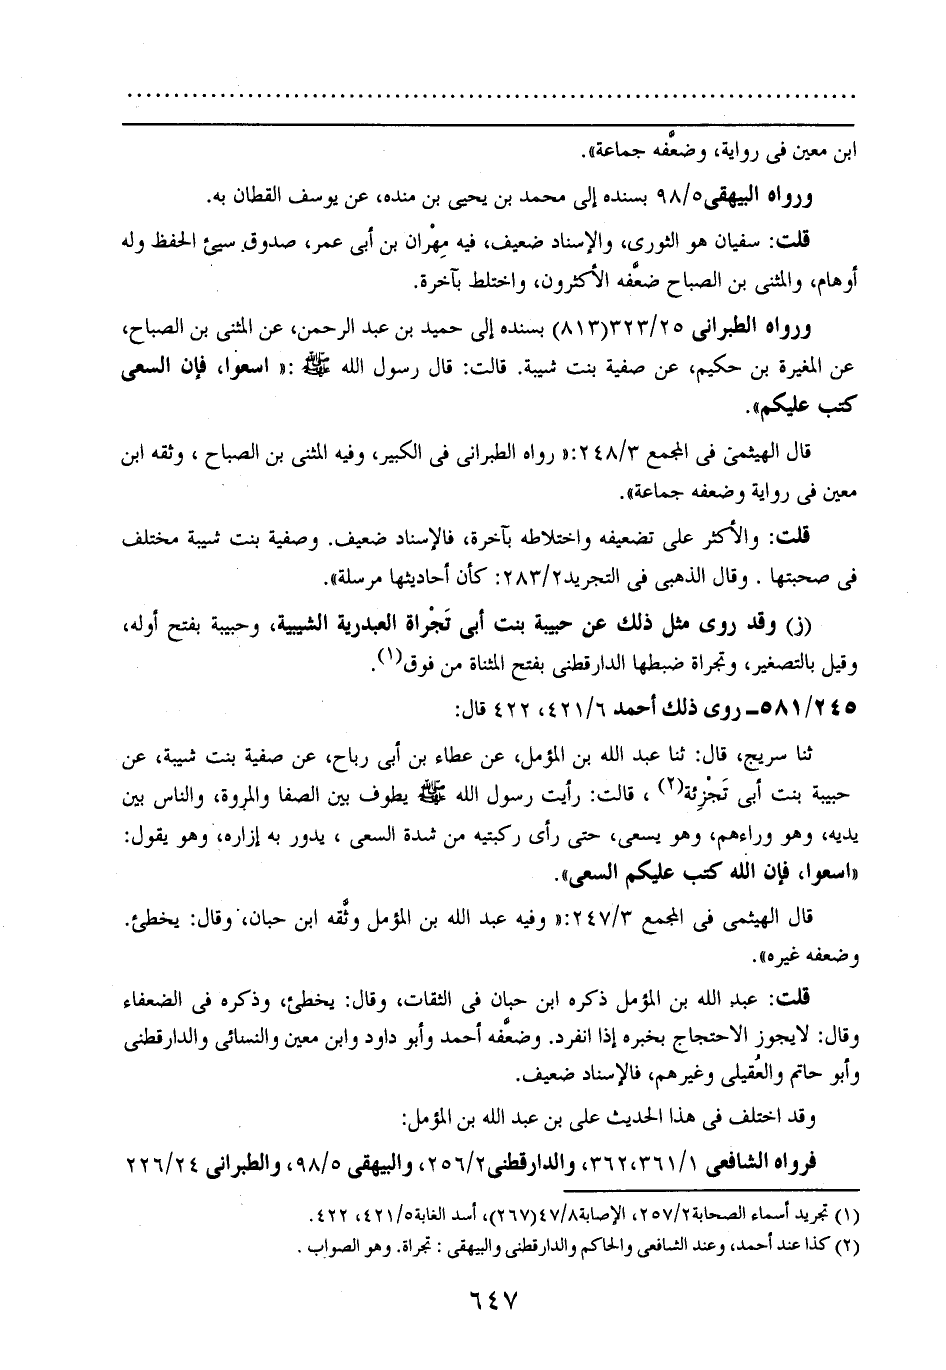 ابن معين فى رواية، وضعَّفه جماعة».
ورواه البيهقى٩٨/٥ بسنده إلى محمد بن يحيى بن منده، عن يوسف القطان به.
قلت: سفيان هو الثورى، والإسناد ضعيف، فيه مِهْران بن أبى عمر، صدوق سيئ الحفظ وله
أوهام، والمثنى بن الصباح ضعَّفه الأكثرون، واختلط بآخرة.
ورواه الطبرانى ٣٢٣/٢٥(٨١٣) بسنده إلى حميد بن عبد الرحمن، عن المثنى بن الصباح،
عن المغيرة بن حكيم، عن صفية بنت شيبة. قالت: قال رسول الله ﷺ :« اسعوا، فإن السعى
كتب عليكم».
قال الهيثمى فى المجمع ٢٤٨/٣:« رواه الطبرانى فى الكبير، وفيه المثنى بن الصباح ، وثقه ابن
معين فى رواية وضعفه جماعة».
قلت: والأكثر على تضعيفه واختلاطه بآخرة، فالإسناد ضعيف. وصفية بنت شيبة مختلف
فى صحبتها . وقال الذهبى فى التجريد٢٨٣/٢: كأن أحاديثها مرسلة».
(ز) وقد روى مثل ذلك عن حبيبة بنت أبى تَجْراة العبدرية الشيبية، وحبيبة بفتح أوله،
وقيل بالتصغير، وتجراة ضبطها الدارقطنى بفتح المثناة من فوق(١).
٥٨١/٢٤٥ـ روى ذلك أحمد ٤٢١/٦، ٤٢٢ قال:
ثنا سريج، قال: ثنا عبد الله بن المؤمل، عن عطاء بن أبى رباح، عن صفية بنت شيبة، عن
حبيبة بنت أبى تَجْزِئة(٢) ، قالت: رأيت رسول الله ﷺ يطوف بين الصفا والمروة، والناس بين
يديه، وهو وراءهم، وهو يسعى، حتى رأى ركبتيه من شدة السعى ، يدور به إزاره، وهو يقول:
«اسعوا، فإن الله كتب عليكم السعى».
قال الهيثمى فى المجمع ٢٤٧/٣:« وفيه عبد الله بن المؤمل وثَّقه ابن حبان، وقال: يخطئ.
وضعفه غيره».
قلت: عبد الله بن المؤمل ذكره ابن حبان فى الثقات، وقال: يخطئ، وذكره فى الضعفاء
وقال: لايجوز الاحتجاج بخبره إذا انفرد. وضعَّفه أحمد وأبو داود وابن معين والنسائى والدارقطنى
وأبو حاتم والعُقيلى وغيرهم، فالإسناد ضعيف.
وقد اختلف فى هذا الحديث على بن عبد الله بن المؤمل:
فرواه الشافعى ٣٦١/١،٣٦٢، والدارقطنى٢٥٦/٢، والبيهقى ٩٨/٥، والطبرانى ٢٢٦/٢٤
(١) تجريد أسماء الصحابة٢٥٧/٢، الإصابة٤٧/٨(٢٦٧)، أسد الغابة٤٢١/٥، ٤٢٢.
(٢) كذا عند أحمد، وعند الشافعى والحاكم والدارقطنى والبيهقى : تجراة. وهو الصواب .
٦٤٧